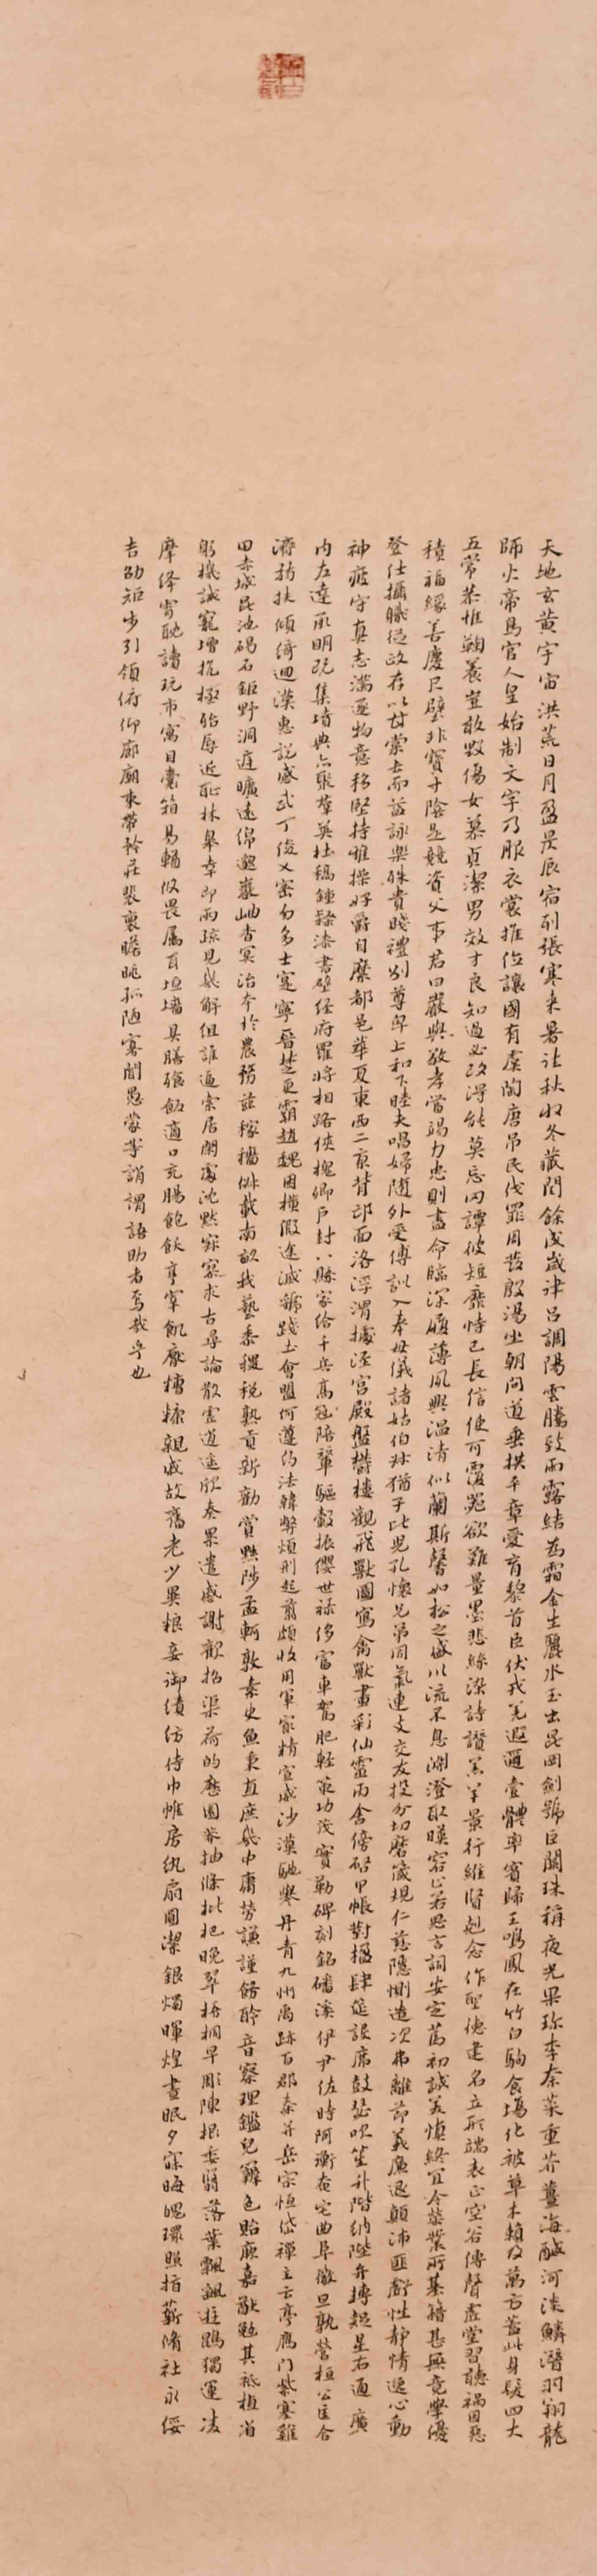 天地玄黄宇宙洪荒日月盈昃辰宿列張寒来暑往秋收冬藏閏餘成歲律呂調陽雲騰致雨露結為霜金生麗水玉出崑岡劍號巨闕珠稱夜光果珍李柰菜重芥薑海鹹河淡鱗潛羽翔龍
師火帝鳥官人皇始制文字乃服衣裳推位讓國有虞陶唐弔民伐罪周發殷湯坐朝問道垂拱平章愛育黎首臣伏戎羌遐邇壹體率賓歸王鳴鳳在竹白駒食場化被草木賴及萬方蓋此身髮四大
五常恭惟鞠養豈敢毀傷女慕貞潔男效才良知過必改得能莫忘罔譚彼短靡恃己長信使可覆器欲難量墨悲絲染詩讚羔羊景行維賢剋念作聖德建名立形端表正空谷傳聲虛堂習聽禍因惡
積福緣善慶尺璧非寶寸陰是競資父事君曰嚴與敬孝當竭力忠則盡命臨深履薄夙興温凊似蘭斯馨如松之盛川流不息淵澄取暎容止若思言詞安定篤初誠美慎終宜令榮業所基籍甚無竟學優
登仕攝職從政存以甘棠去而益詠樂殊貴賤禮別尊卑上和下睦夫唱婦隨外受傅訓入奉母儀諸姑伯叔猶子比兒孔懷兄弟同氣連支交友投分切磨箴規仁慈隱惻造次弗離節義廉退顛沛匪虧性靜情逸心動
神疲守真志滿逐物意移堅持雅操好爵自縻都邑華夏東西二京背邙面洛浮渭據涇宮殿盤欝樓觀飛驚圖寫禽獸畫彩仙靈丙舍傍啓甲帳對楹肆筵設席鼓瑟吹笙升階納陛弁轉疑星右通廣
内左達承明既集墳典亦聚羣英杜稿鍾隸漆書壁經府羅將相路俠槐卿戶封八縣家給千兵高冠陪輦驅轂振纓世禄侈富車駕肥輕策功茂實勒碑刻銘磻溪伊尹佐時阿衡奄宅曲阜微旦孰營桓公匡合
濟弱扶傾綺迴漢惠說感武丁俊乂密勿多士寔寧晉楚更霸趙魏困橫假途滅虢踐土會盟何遵約法韓弊煩刑起翦頗牧用軍最精宣威沙漠馳譽丹青九州禹跡百郡秦并岳宗恒岱禪主云亭鴈門紫塞雞
田赤城昆池碣石鉅野洞庭曠遠緜邈巖岫杳冥治本於農務兹稼穡俶載南畝我藝黍稷税熟貢新勸賞黜陟孟軻敦素史魚秉直庶幾中庸勞謙謹勑聆音察理鑑皃辯色貽厥嘉猷勉其祗植省
躬譏誡寵增抗極殆辱近恥林皋幸即兩疏見幾解組誰逼索居閑處沈默寂寥求古尋論散慮逍遥欣奏累遣慼謝歡招渠荷的歷園莽抽條枇杷晚翠梧桐早彫陳根委翳落葉飄飖遊鵾獨運凌
摩絳霄耽讀玩市寓目囊箱易輶攸畏屬耳垣墻具膳飡飯適口充腸飽飫亨宰飢厭糟糠親戚故舊老少異粮妾御績紡侍巾帷房紈扇圓潔銀燭暐煌晝眠夕寐晦魄環照指薪脩祜永綏
吉劭矩步引領俯仰廊廟束帶矜莊裴褱瞻眺孤陋寡聞愚蒙等誚謂語助者焉哉乎也